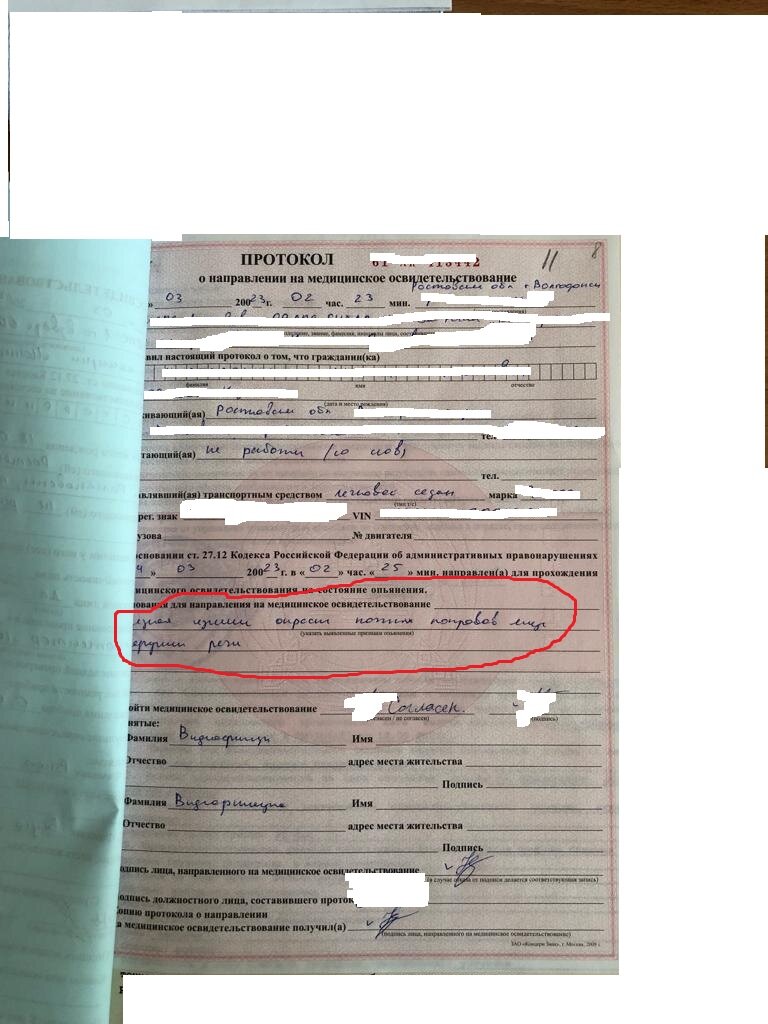 11 8
ПРОТОКОЛ
о направлении на медицинское освидетельствование
Ростовская обл г. Волгодонск
» 03 200 23 г. 02 час. 23 мин.
вил настоящий протокол о том, что гражданин(ка)
фамилия имя отчество
(дата и место рождения)
живающий(ая) Ростовская обл
тел.
тающий(ая) не работает (со слов)
тел.
авлявший(ая) транспортным средством легковой седан марка
(тип т/с)
рег. знак VIN
узова № двигателя
основании ст. 27.12 Кодекса Российской Федерации об административных правонарушениях
» 03 200 23 г. в « 02 » час. « 25 » мин. направлен(а) для прохождения
ицинского освидетельствования на состояние опьянения.
нования для направления на медицинское освидетельствование
окраски кожных покровов лица
(указать выявленные признаки опьянения)
речи
ойти медицинское освидетельствование Согласен.
согласен / не согласен) (подпись)
нятые:
Фамилия Видеофиксация Имя
Отчество адрес места жительства
Подпись
Фамилия Видеофиксация Имя
Отчество адрес места жительства
Подпись
одпись лица, направленного на медицинское освидетельствование
случае отказа от подписи делается соответствующая запись)
одпись должностного лица, составившего проток
Копию протокола о направлении
а медицинское освидетельствование получил(а)
(подпись лица, направленного на медицинское освидетельствование)
ЗАО «Концерн Знак», г. Москва, 2009 г.